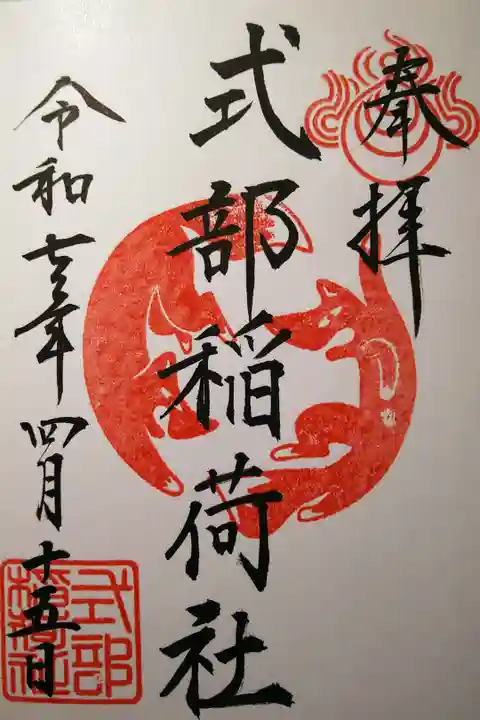 奉拝
式部稲荷社
令和七年四月十五日
式部
稲荷社